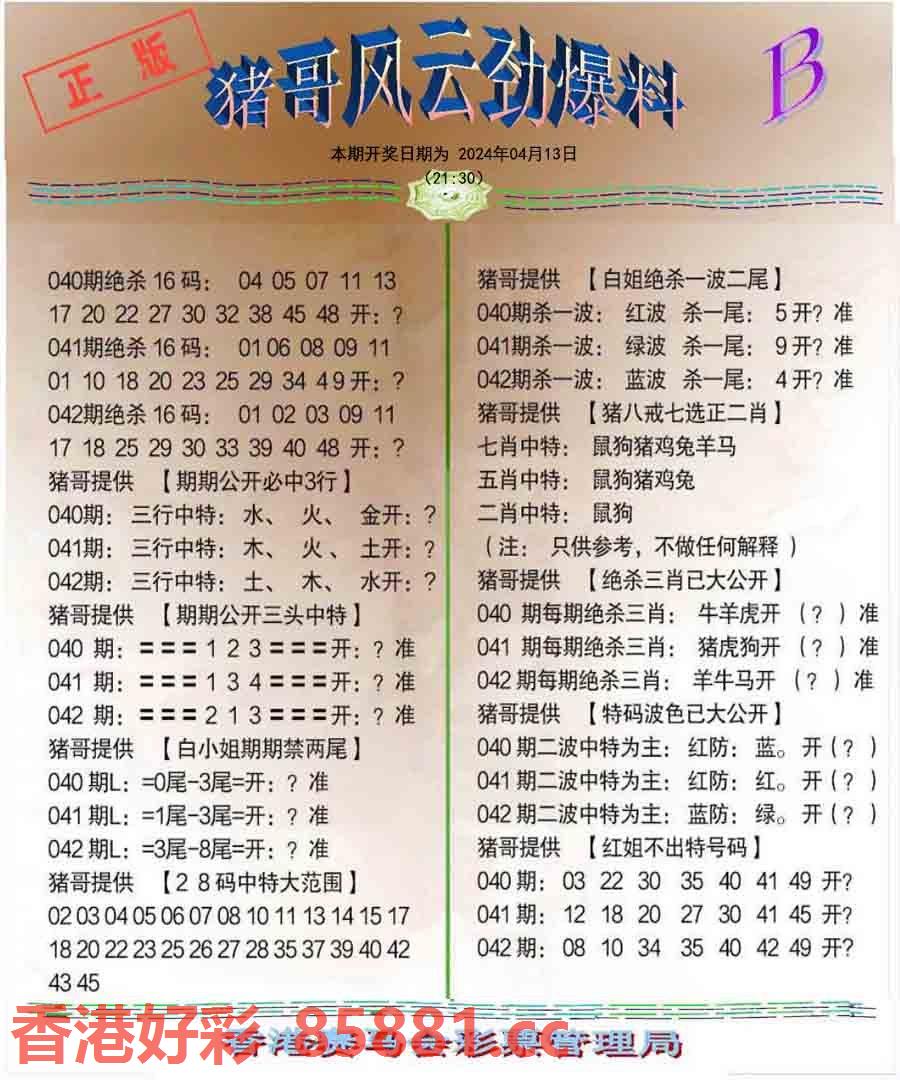 正版
猪哥风云劲爆料
B
本期开奖日期为 2024年04月13日
(21:30)
040期绝杀16码： 04 05 07 11 13
17 20 22 27 30 32 38 45 48 开：?
041期绝杀16码： 01 06 08 09 11
01 10 18 20 23 25 29 34 49开：?
042期绝杀16码： 01 02 03 09 11
17 18 25 29 30 33 39 40 48 开：?
猪哥提供 【期期公开必中3行】
040期：三行中特：水、 火、 金开：?
041期：三行中特：木、 火、 土开：?
042期：三行中特：土、 木、 水开：?
猪哥提供 【期期公开三头中特】
040 期：===1 2 3===开：? 准
041 期：===1 3 4===开：? 准
042 期：===2 1 3===开：? 准
猪哥提供 【白小姐期期禁两尾】
040期L：=0尾-3尾=开：? 准
041期L：=1尾-3尾=开：? 准
042期L：=3尾-8尾=开：? 准
猪哥提供 【28码中特大范围】
02 03 04 05 06 07 08 10 11 13 14 15 17
18 20 22 23 25 26 27 28 35 37 39 40 42
43 45
猪哥提供 【白姐绝杀一波二尾】
040期杀一波： 红波 杀一尾： 5开? 准
041期杀一波： 绿波 杀一尾： 9开? 准
042期杀一波： 蓝波 杀一尾： 4开? 准
猪哥提供 【猪八戒七选正二肖】
七肖中特： 鼠狗猪鸡兔羊马
五肖中特： 鼠狗猪鸡兔
二肖中特： 鼠狗
（注： 只供参考，不做任何解释）
猪哥提供 【绝杀三肖已大公开】
040 期每期绝杀三肖： 牛羊虎开 （?）准
041 期每期绝杀三肖： 猪虎狗开 （?）准
042期每期绝杀三肖： 羊牛马开 （?）准
猪哥提供 【特码波色已大公开】
040期二波中特为主：红防：蓝。开(?)
041期二波中特为主：红防：红。开(?)
042期二波中特为主：蓝防：绿。开(?)
猪哥提供 【红姐不出特号码】
040期：03 22 30 35 40 41 49 开?
041期：12 18 20 27 30 41 45 开?
042期：08 10 34 35 40 42 49 开?
香港好彩 85881.cc
香港赛马会彩票管理局